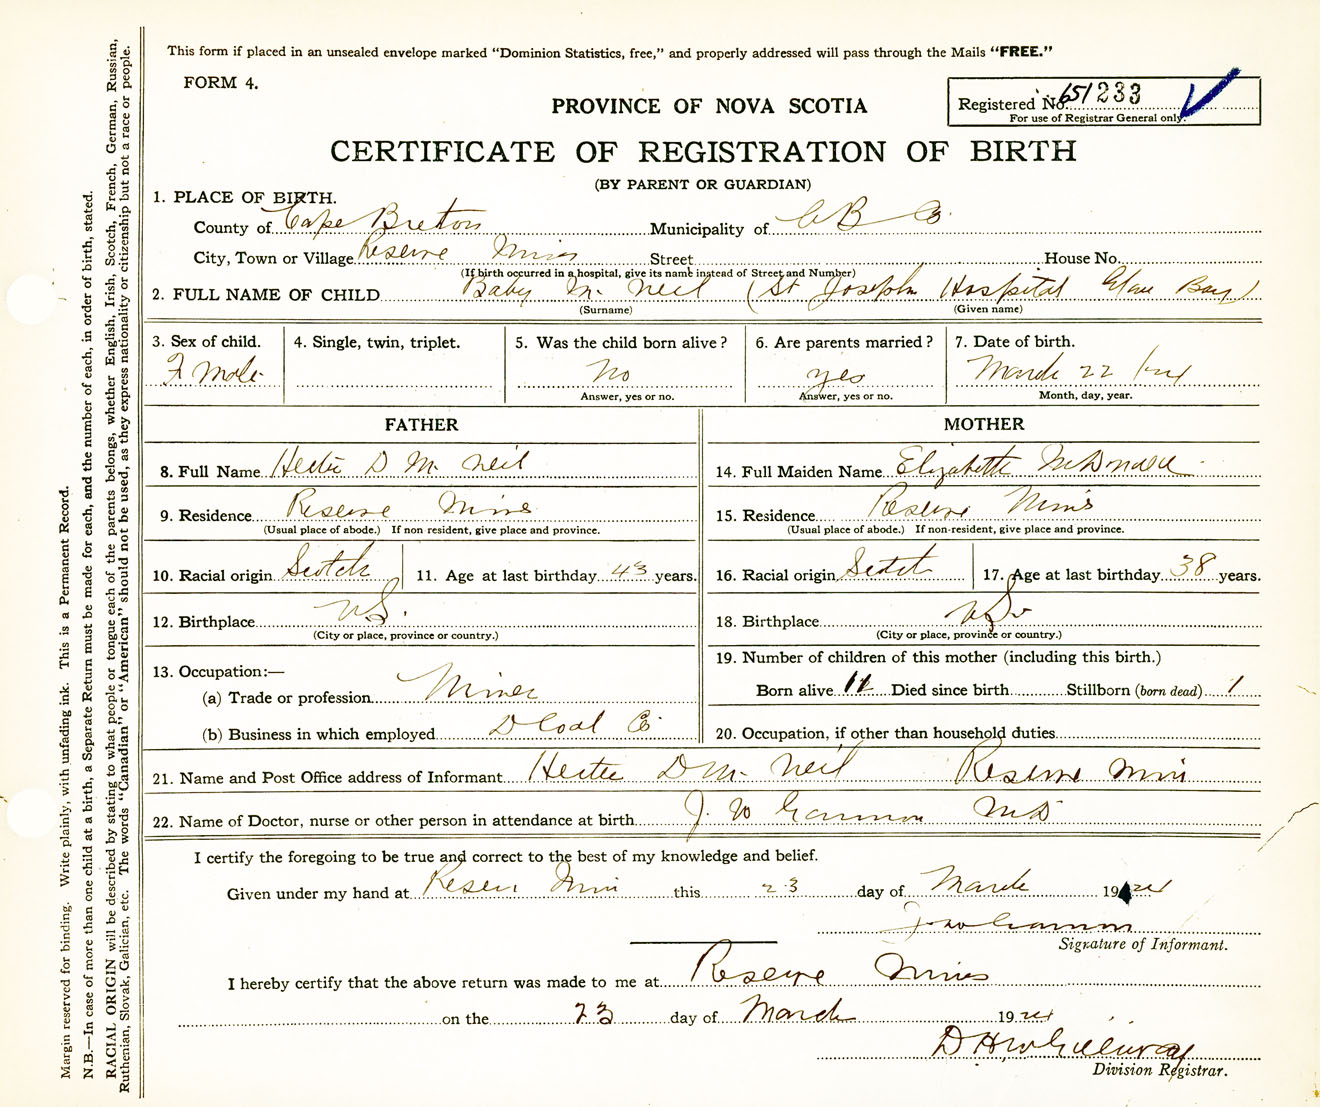 This form if placed in an unsealed envelope marked "Dominion Statistics, free," and properly addressed will pass through the Mails "FREE."
FORM 4.
PROVINCE OF NOVA SCOTIA
Registered No. 651233
For use of Registrar General only.
CERTIFICATE OF REGISTRATION OF BIRTH
(BY PARENT OR GUARDIAN)
1. PLACE OF BIRTH.
County of Cape Breton Municipality of C B Co
City, Town or Village Reserve Mines Street House No.
(If birth occurred in a hospital, give its name instead of Street and Number)
2. FULL NAME OF CHILD Baby Mc Neil (St Joseph Hospital Glace Bay)
(Surname) (Given name)
3. Sex of child. 4. Single, twin, triplet. 5. Was the child born alive? 6. Are parents married? 7. Date of birth.
No yes March 22
Answer, yes or no. Answer, yes or no. Month, day, year.
FATHER MOTHER
8. Full Name Hector D Mc Neil 14. Full Maiden Name Elizabeth McDonald
9. Residence Reserve Mines 15. Residence Reserve Mines
(Usual place of abode.) If non resident, give place and province. (Usual place of abode.) If non-resident, give place and province.
10. Racial origin Scotch 11. Age at last birthday 43 years. 16. Racial origin Scotch 17. Age at last birthday 38 years.
12. Birthplace N.S. 18. Birthplace N.S.
(City or place, province or country.) (City or place, province or country.)
13. Occupation:— 19. Number of children of this mother (including this birth.)
(a) Trade or profession Miner Born alive 11 Died since birth Stillborn (born dead) 1
(b) Business in which employed D Coal Co 20. Occupation, if other than household duties
21. Name and Post Office address of Informant Hector D Mc Neil Reserve Mines
22. Name of Doctor, nurse or other person in attendance at birth J. W MD
I certify the foregoing to be true and correct to the best of my knowledge and belief.
Given under my hand at Reserve Mines this 23 day of March 1924
Signature of Informant.
I hereby certify that the above return was made to me at Reserve Mines
on the 23 day of March 1924
D H McGillivray
Division Registrar.
Margin reserved for binding. Write plainly, with unfading ink. This is a Permanent Record.
N.B.—In case of more than one child at a birth, a Separate Return must be made for each, and the number of each, in order of birth, stated.
RACIAL ORIGIN will be described by stating to what people or tongue each of the parents belongs, whether English, Irish, Scotch, French, German, Russian,
Ruthenian, Slovak, Galician, etc. The words "Canadian" or "American" should not be used, as they express nationality or citizenship but not a race or people.